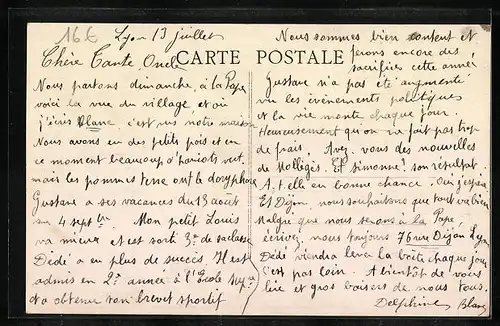 16€
Lyon 13 juillet
CARTE POSTALE
Chère Tante Oncle
Nous partons dimanche, à la Pape
voici la vue du village, et où
j'écris Blanc c'est pas notre maison
Nous avons eu des petits pois et en
ce moment beaucoup d'haricots vert,
mais les pommes terre ont le doryphore
Gustave a ses vacances du 13 août
au 4 septbre. Mon petit Louis
va mieux et est sorti 3e de sa classe
Dédé a eu plus de succès. Il est
admis en 2e année à l'école supre
et a obtenu son brevet sportif
Nous sommes bien content et
ferons encore des
sacrifices cette année
Gustave n'a pas été augmenté
vu les événements politiques
et la vie monte chaque jour.
Heureusement qu'on ne fait pas trop
de frais. Avez vous des nouvelles
de Mollégès. Et Simonne? son résultat.
A t elle eu bonne chance. Oui j'espère
Et Dijon, nous souhaitons que tout va bien
Malgré que nous serons à la Pape
écrivez nous toujours 76 rue Dijon Lyon
Dédé viendra lever la boîte chaque jour
c'est pas loin. A bientôt de vous
lire et gros baisers de nous tous.
Delphine Blanc